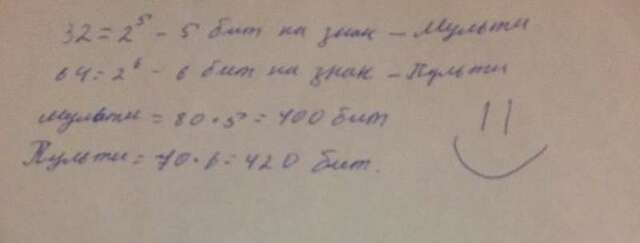 32 = 2⁵ - 5 бит на знак - Мульти
64 = 2⁶ - 6 бит на знак - Пульти
Мульти = 80 · 5 = 400 бит
Пульти = 70 · 6 = 420 бит.